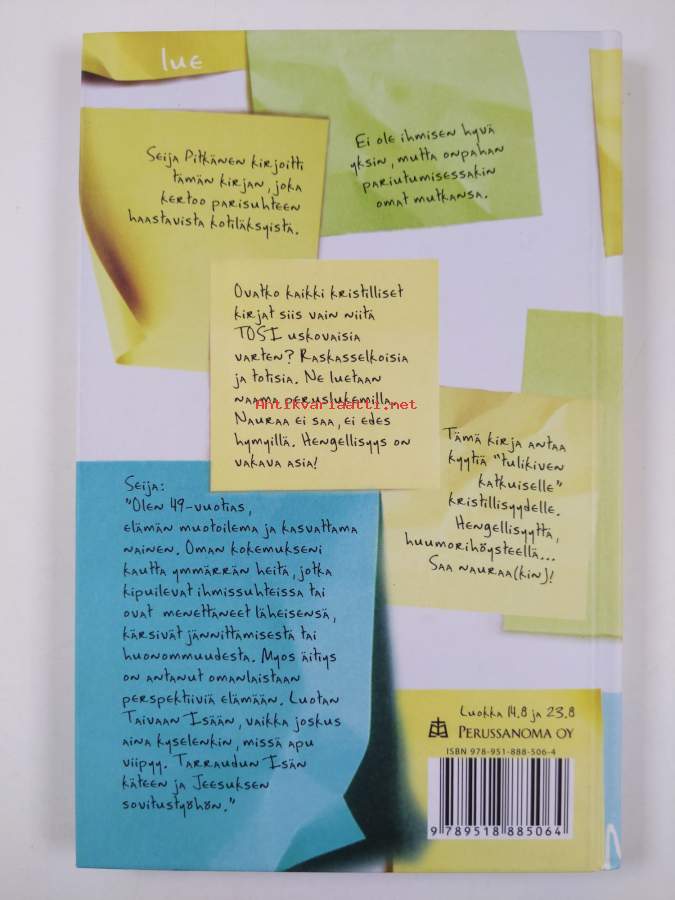 lue
Seija Pitkänen kirjoitti
tämän kirjan, joka
kertoo parisuhteen
haastavista kotiläksyistä.
Ei ole ihmisen hyvä
yksin, mutta onpahan
pariutumisessakin
omat mutkansa.
Ovatko kaikki kristilliset
kirjat siis vain niitä
TOSI uskovaisia
varten? Raskasselkoisia
ja totisia. Ne luetaan
naama peruslukemilla.
Antikvariaatti.net
Nauraa ei saa, ei edes
hymyillä. Hengellisyys on
vakava asia!
Tämä kirja antaa
kyytiä "tulikiven
katkuiselle"
kristillisyydelle.
Hengellisyyttä,
huumorihöysteellä...
Saa nauraa(kin)!
Seija:
"Olen 49-vuotias,
elämän muotoilema ja kasvattama
nainen. Oman kokemukseni
kautta ymmärrän heitä, jotka
kipuilevat ihmissuhteissa tai
ovat menettäneet läheisensä,
kärsivät jännittämisestä tai
huonommuudesta. Myös äitiys
on antanut omanlaistaan
perspektiiviä elämään. Luotan
Taivaan Isään, vaikka joskus
aina kyselenkin, missä apu
viipyy. Tarraudun Isän
käteen ja Jeesuksen
sovitustyöhön."
Luokka 14.8 ja 23.8
Perussanoma Oy
ISBN 978-951-888-506-4
9 789518 885064